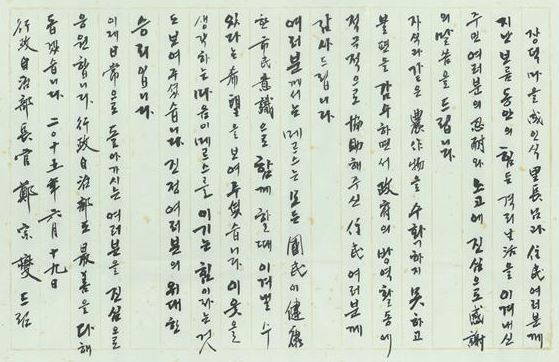 장덕마을 成인식 里長님과 住民 여러분께
지난 보름 동안의 힘든 격리生活을 이겨내신
주민 여러분의 忍耐와 노고에 진심으로 感謝
의 말씀을 드립니다.
자식과 같은 農作物을 수확하지 못하고
불편을 감수하면서 政府의 방역활동에
적극적으로 協助해 주신 住民 여러분께
감사드립니다.
여러분께서는 메르스는 모든 國民이 健康
한 市民意識으로 함께 할 때 이겨낼 수
있다는 希望을 보여주셨습니다. 이웃을
생각하는 마음이 메르스를 이기는 힘이라는 것
도 보여주셨습니다. 진정 여러분의 위대한
승리입니다.
이제 日常으로 돌아가시는 여러분을 진심으로
응원합니다. 行政自治部도 最善을 다해
돕겠습니다. 二〇十五年 六月 十九日
行政自治部長官 鄭宗燮 드림